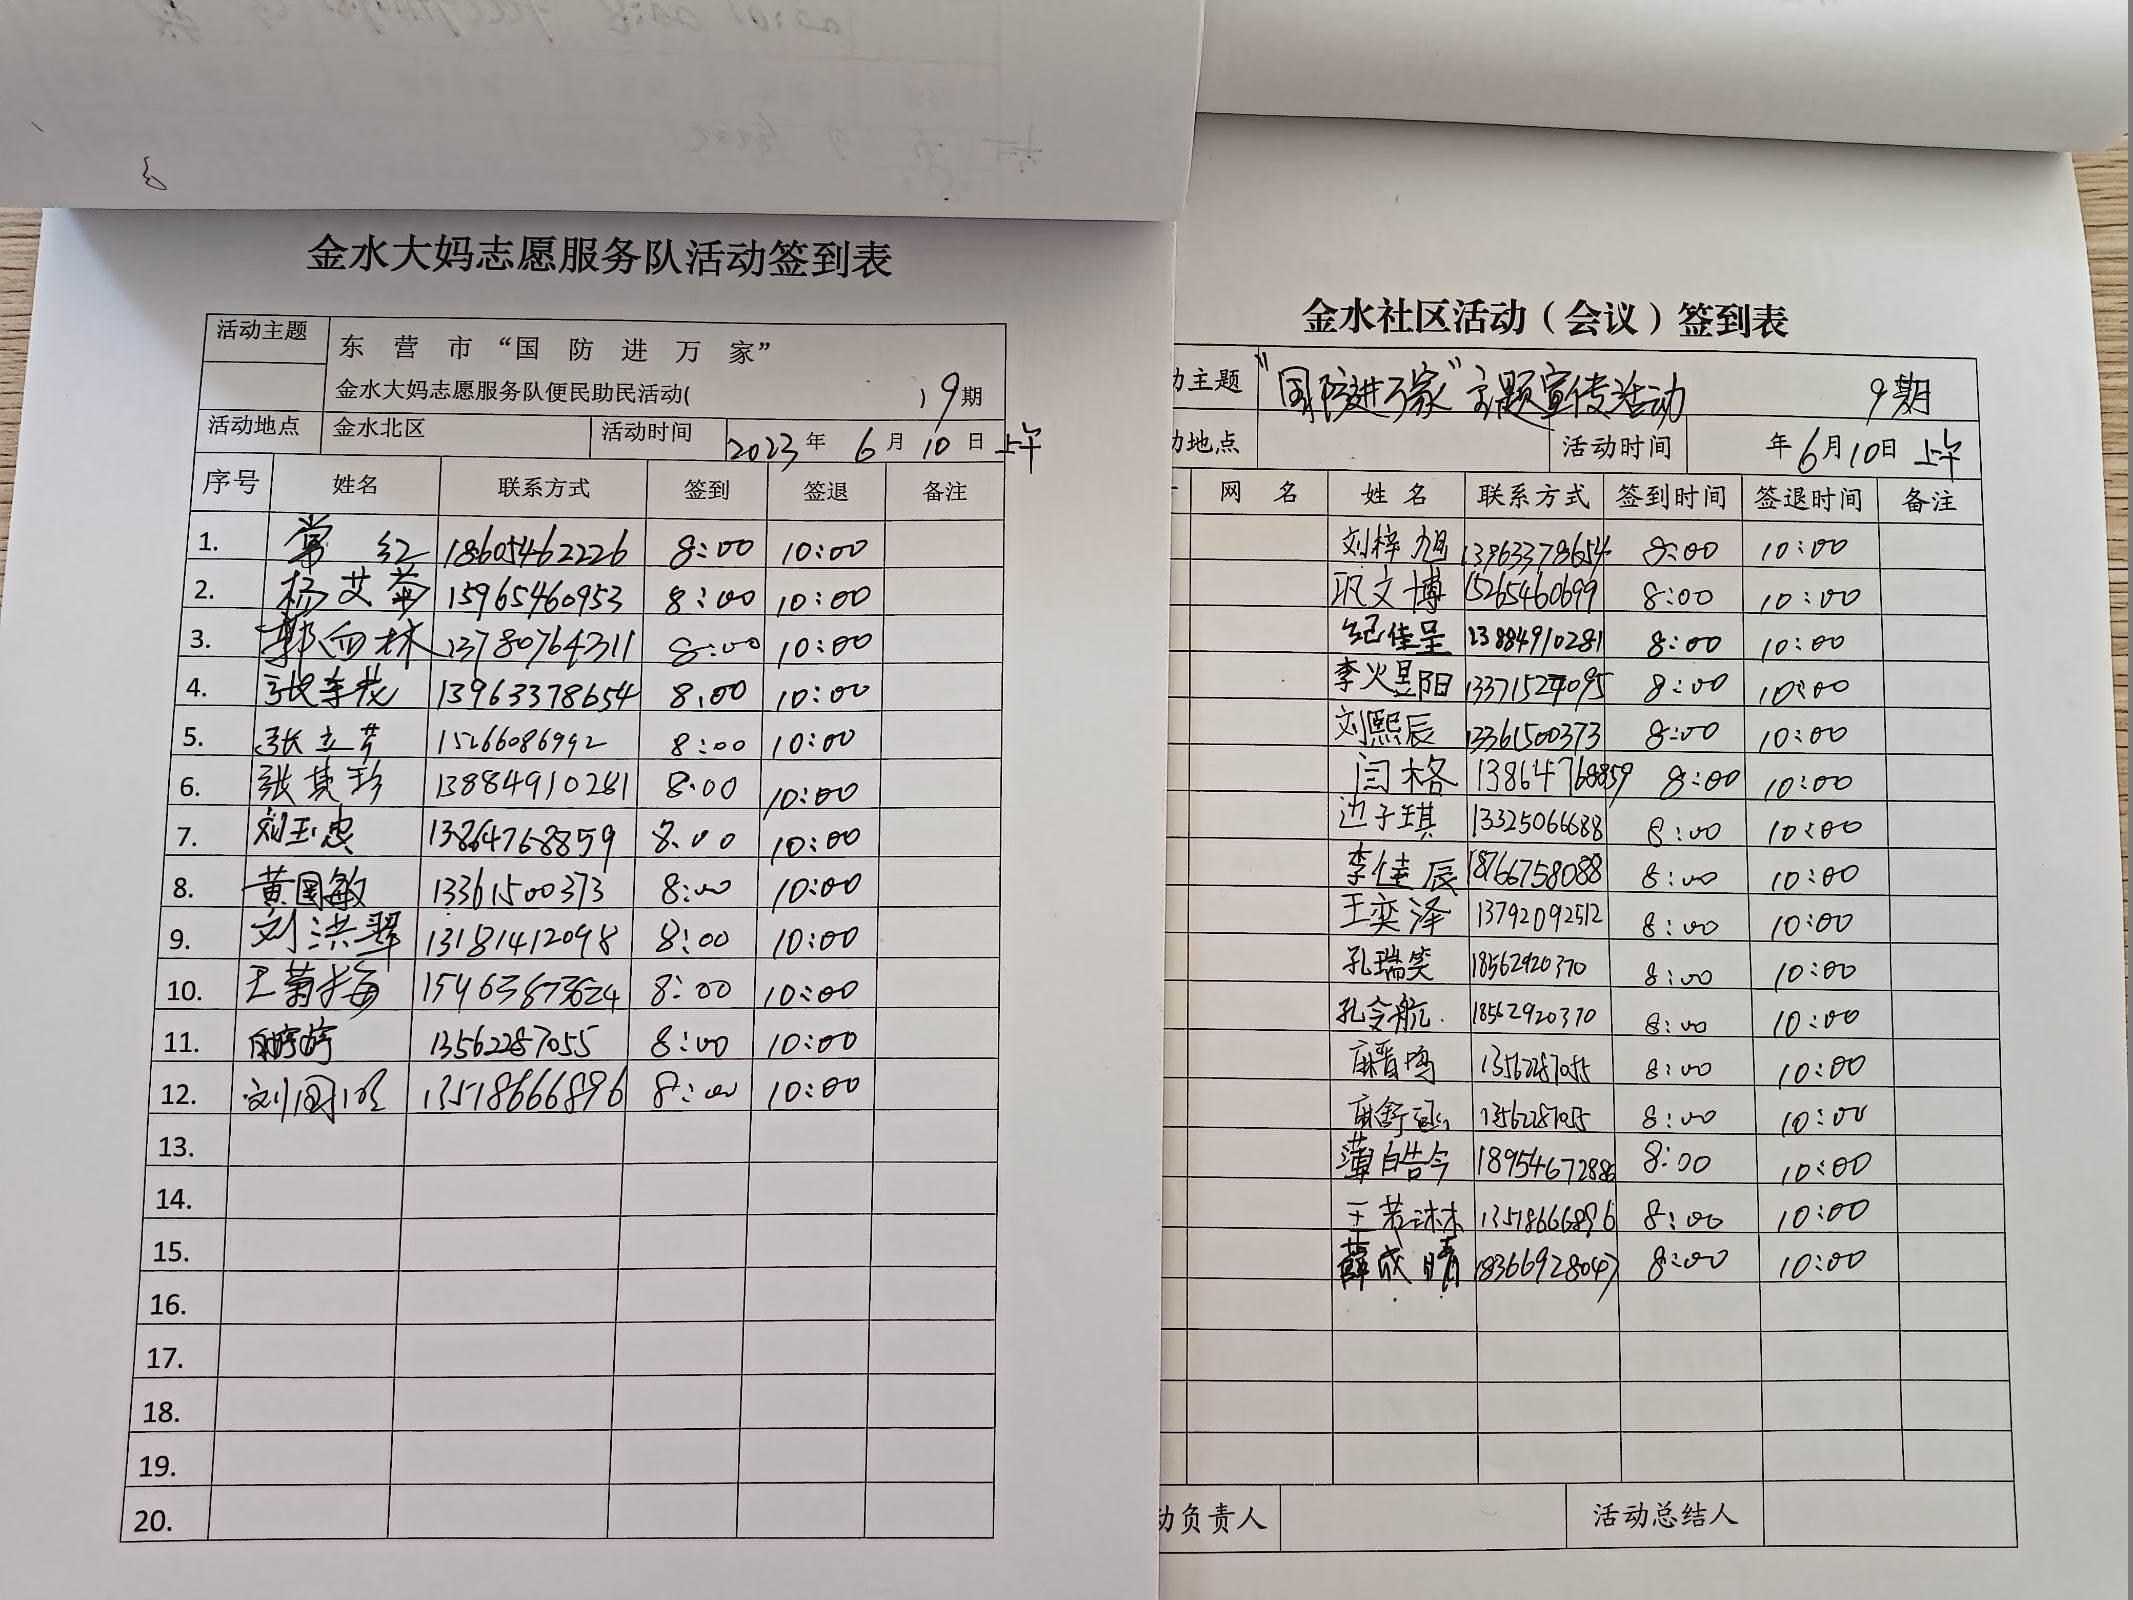 金水大妈志愿服务队活动签到表
活动主题 东营市“国防进万家”
金水大妈志愿服务队便民助民活动( ) 9期
活动地点 金水北区 活动时间 2023年 6月 10日 上午
序号 姓名 联系方式 签到 签退 备注
1. 常红 18605462226 8:00 10:00
2. 杨艾苹 15965460953 8:00 10:00
3. 郭向林 13780764311 8:00 10:00
4. 13963378654 8:00 10:00
5. 张立芳 15266086992 8:00 10:00
6. 张其珍 13884910281 8:00 10:00
7. 刘玉忠 13864768859 8:00 10:00
8. 黄国敏 13361500373 8:00 10:00
9. 刘洪翠 13181412098 8:00 10:00
10. 王菊梅 8:00 10:00
11. 13562287055 8:00 10:00
12. 13518666896 8:00 10:00
13.
14.
15.
16.
17.
18.
19.
20.
金水社区活动（会议）签到表
动主题 “国防进万家”主题宣传活动 9期
动地点 活动时间 年6月10日 上午
网名 姓名 联系方式 签到时间 签退时间 备注
刘梓旭 13963378654 8:00 10:00
巩文博 15265460699 8:00 10:00
纪佳呈 13884910281 8:00 10:00
李火昱阳 13371524095 8:00 10:00
刘熙辰 13361500373 8:00 10:00
闫格 13864768859 8:00 10:00
边子琪 13325066688 8:00 10:00
李佳辰 18766758088 8:00 10:00
王奕泽 13792092512 8:00 10:00
孔瑞笑 18562920370 8:00 10:00
孔令航 18562920370 8:00 10:00
麻晋鸣 13562287055 8:00 10:00
麻舒涵 13562287055 8:00 10:00
薄皓今 18954672886 8:00 10:00
王若琳 13518666896 8:00 10:00
薛成晴 18366928047 8:00 10:00
动负责人 活动总结人